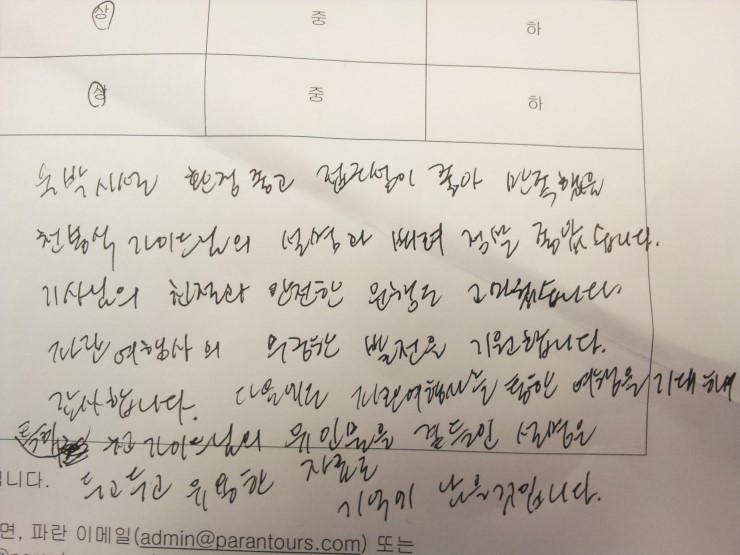 상 중 하
상 중 하
숙박시설 환경 좋고 접근성이 좋아 만족했음
천봉석 가이드님의 설명과 배려 정말 좋았습니다.
기사님의 친절과 안전한 운행도 고마웠습니다.
파란여행사의 무궁한 발전을 기원합니다.
감사합니다. 다음에도 파란여행사를 통한 여행을 기대하며
특히 천가이드님의 위인물을 곁들인 설명은
두고두고 유용한 자료로
기억이 남을것입니다.
니다.
면, 파란 이메일(admin@parantours.com) 또는